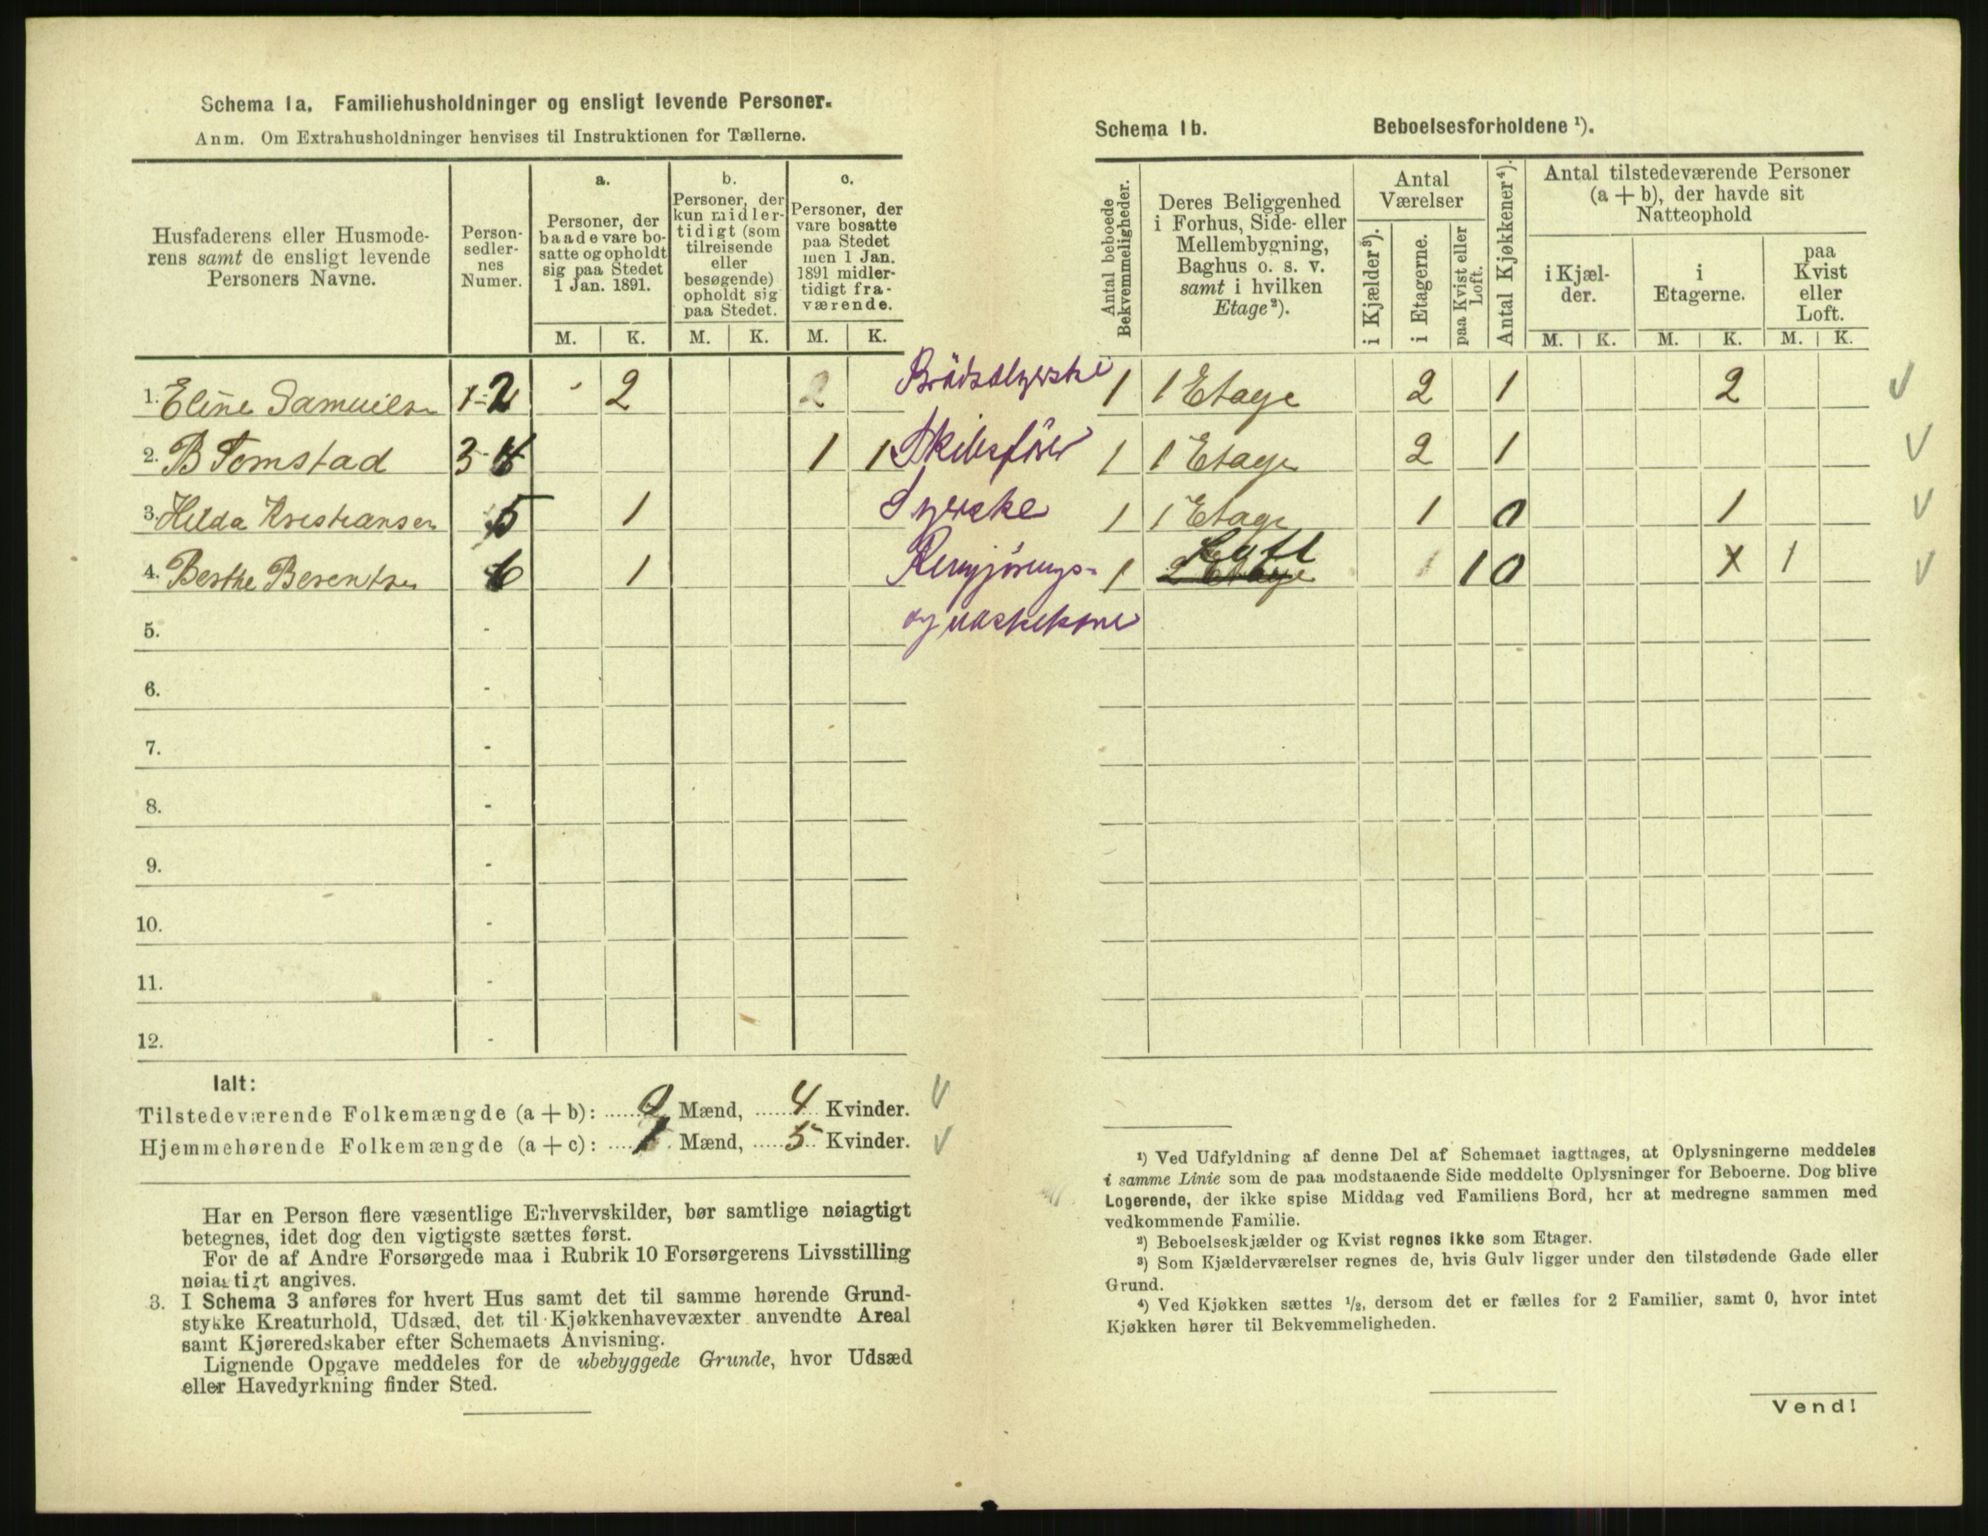 Schema 1a. Familiehusholdninger og ensligt levende Personer.
Anm. Om Extrahusholdninger henvises til Instruktionen for Tællerne.
Husfaderens eller Husmode-
rens samt de ensligt levende
Personers Navne.
Person-
sedler-
nes
Numer.
a.
Personer, der
baade vare bo-
satte og opholdt
sig paa Stedet
1 Jan. 1891.
b.
Personer, der
kun midler-
tidigt (som
tilreisende
eller
besøgende)
opholdt sig
paa Stedet.
c.
Personer, der
vare bosatte
paa Stedet
men 1 Jan.
1891 midler-
tidigt fra-
værende.
M. K. M. K. M. K.
1. Eline Samuelsen 1-2 2 2 Brödsælgerske
2. B Tomstad 3-4 1 1 Skibsförer
3. Hilda Kristiansen 5 1 Syerske
4. Berthe Berentsen 6 1 Rengjörings-
og vaskekone
5. -
6. -
7. -
8. -
9. -
10. -
11. -
12. -
Ialt:
Tilstedeværende Folkemængde (a + b): 0 Mænd, 4 Kvinder.
Hjemmehørende Folkemængde (a + c): 1 Mænd, 5 Kvinder.
Har en Person flere væsentlige Erhvervskilder, bør samtlige nøiagtigt
betegnes, idet dog den vigtigste sættes først.
For de af Andre Forsørgede maa i Rubrik 10 Forsørgerens Livsstilling
nøiagtigt angives.
3. I Schema 3 anføres for hvert Hus samt det til samme hørende Grund-
stykke Kreaturhold, Udsæd, det til Kjøkkenhavevæxter anvendte Areal
samt Kjøreredskaber efter Schemaets Anvisning.
Lignende Opgave meddeles for de ubebyggede Grunde, hvor Udsæd
eller Havedyrkning finder Sted.
Schema 1b. Beboelsesforholdene ¹).
Antal beboede
Bekvemmeligheder.
Deres Beliggenhed
i Forhus, Side- eller
Mellembygning,
Baghus o. s. v.
samt i hvilken
Etage ²).
Antal
Værelser
i Kjælder ³).
i Etagerne.
paa Kvist eller
Loft.
Antal Kjøkkener ⁴).
Antal tilstedeværende Personer
(a + b), der havde sit
Natteophold
i Kjæl-
der.
i
Etagerne.
paa
Kvist
eller
Loft.
M. K. M. K. M. K.
1 1 Etage 2 1 2
1 1 Etage 2 1
1 1 Etage 1 0 1
Loft
1 2 Etage 1 1 0 X 1
¹) Ved Udfyldning af denne Del af Schemaet iagttages, at Oplysningerne meddeles
i samme Linie som de paa modstaaende Side meddelte Oplysninger for Beboerne. Dog blive
Logerende, der ikke spise Middag ved Familiens Bord, her at medregne sammen med
vedkommende Familie.
²) Beboelseskjælder og Kvist regnes ikke som Etager.
³) Som Kjælderværelser regnes de, hvis Gulv ligger under den tilstødende Gade eller
Grund.
⁴) Ved Kjøkken sættes ½, dersom det er fælles for 2 Familier, samt 0, hvor intet
Kjøkken hører til Bekvemmeligheden.
Vend!